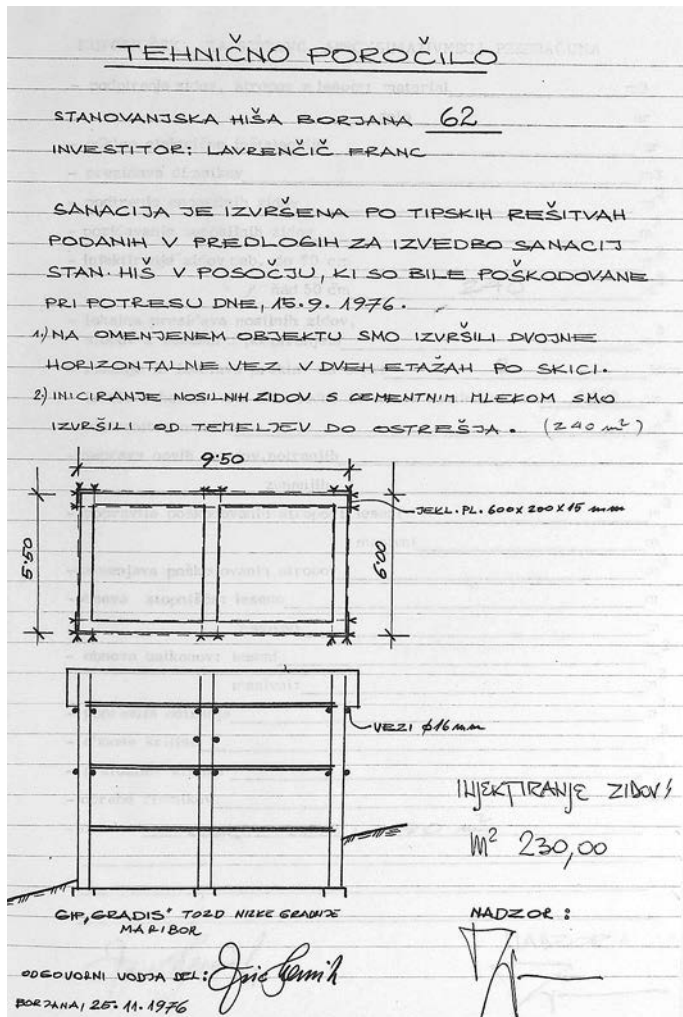 TEHNIČNO POROČILO
STANOVANJSKA HIŠA BORJANA 62
INVESTITOR: LAVRENČIČ FRANC
SANACIJA JE IZVRŠENA PO TIPSKIH REŠITVAH
PODANIH V PREDLOGIH ZA IZVEDBO SANACIJ
STAN. HIŠ V POSOČJU, KI SO BILE POŠKODOVANE
PRI POTRESU DNE, 15.9. 1976.
1.) NA OMENJENEM OBJEKTU SMO IZVRŠILI DVOJNE
HORIZONTALNE VEZ V DVEH ETAŽAH PO SKICI.
2.) INICIRANJE NOSILNIH ZIDOV S CEMENTNIM MLEKOM SMO
IZVRŠILI OD TEMELJEV DO OSTREŠJA. (240 m²)
9.50
JEKL. PL. 600x200x15 mm
5.50
6.00
VEZI ϕ16 mm
INJEKTIRANJE ZIDOV
m² 230,00
GIP „GRADIS" TOZD NIZKE GRADNJE
MARIBOR
NADZOR:
ODGOVORNI VODJA DEL:
BORJANA, 25.11.1976